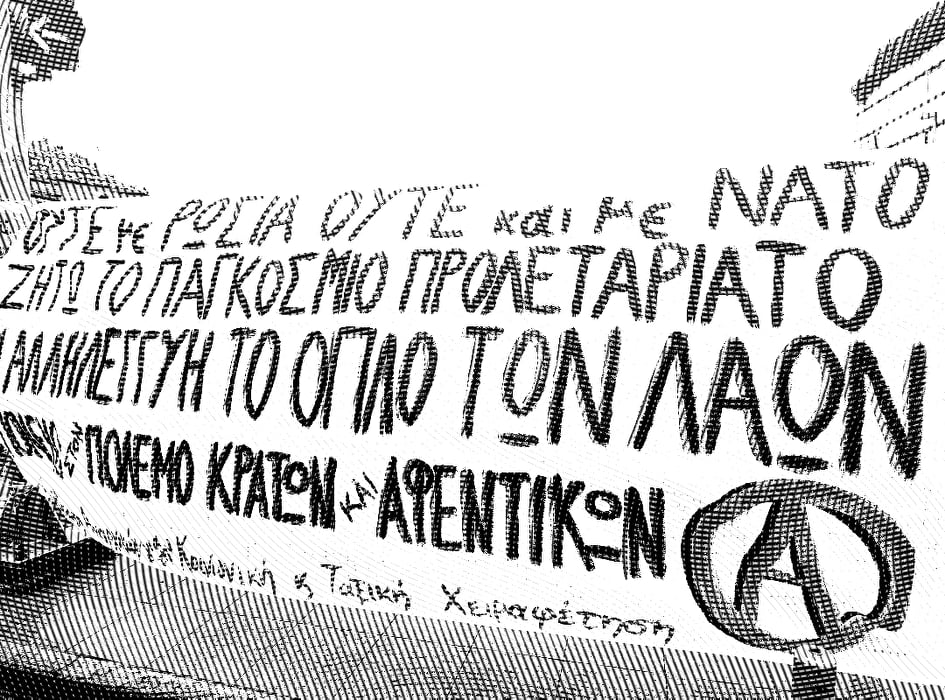 ΟΥΤΕ με ΡΩΣΙΑ ΟΥΤΕ και με ΝΑΤΟ
ΖΗΤΩ ΤΟ ΠΑΓΚΟΣΜΙΟ ΠΡΟΛΕΤΑΡΙΑΤΟ
ΑΛΛΗΛΕΓΓΥΗ ΤΟ ΟΠΛΟ ΤΩΝ ΛΑΩΝ
ΣΤΟΝ ΠΟΛΕΜΟ ΚΡΑΤΩΝ ΚΑΙ ΑΦΕΝΤΙΚΩΝ
Κοινωνική κ Ταξική Χειραφέτηση